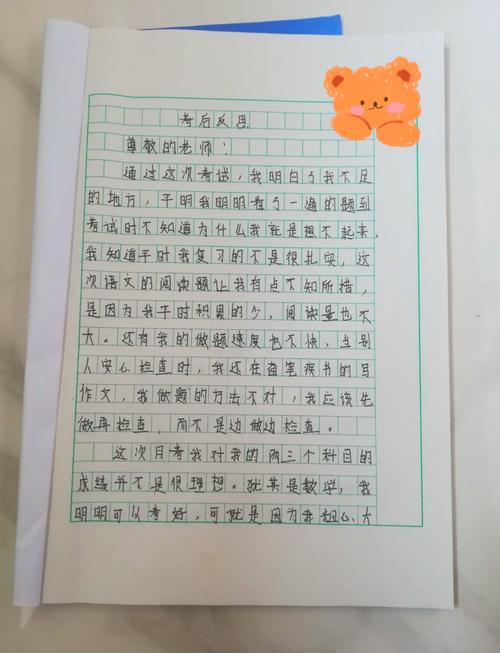 考后反思
尊敬的老师：
通过这次考试，我明白了我不足
的地方，平明我明明看了一遍的题到
考试时不知道为什么我就是想不起来，
我知道平时我复习的不是很扎实，这
次语文的阅读题让我有点不知所措，
是因为我平时积累的少，阅读量也不
大。还有我的做题速度也不快，当别
人安心检查时，我还在奋笔疾书的写
作文，我做题的方法不对，我应该先
做再检查，而不是边做边检查。
这次月考我对我的两三个科目的
成绩并不是很理想。犹其是数学，我
明明可以考好，可就是因为我粗心大